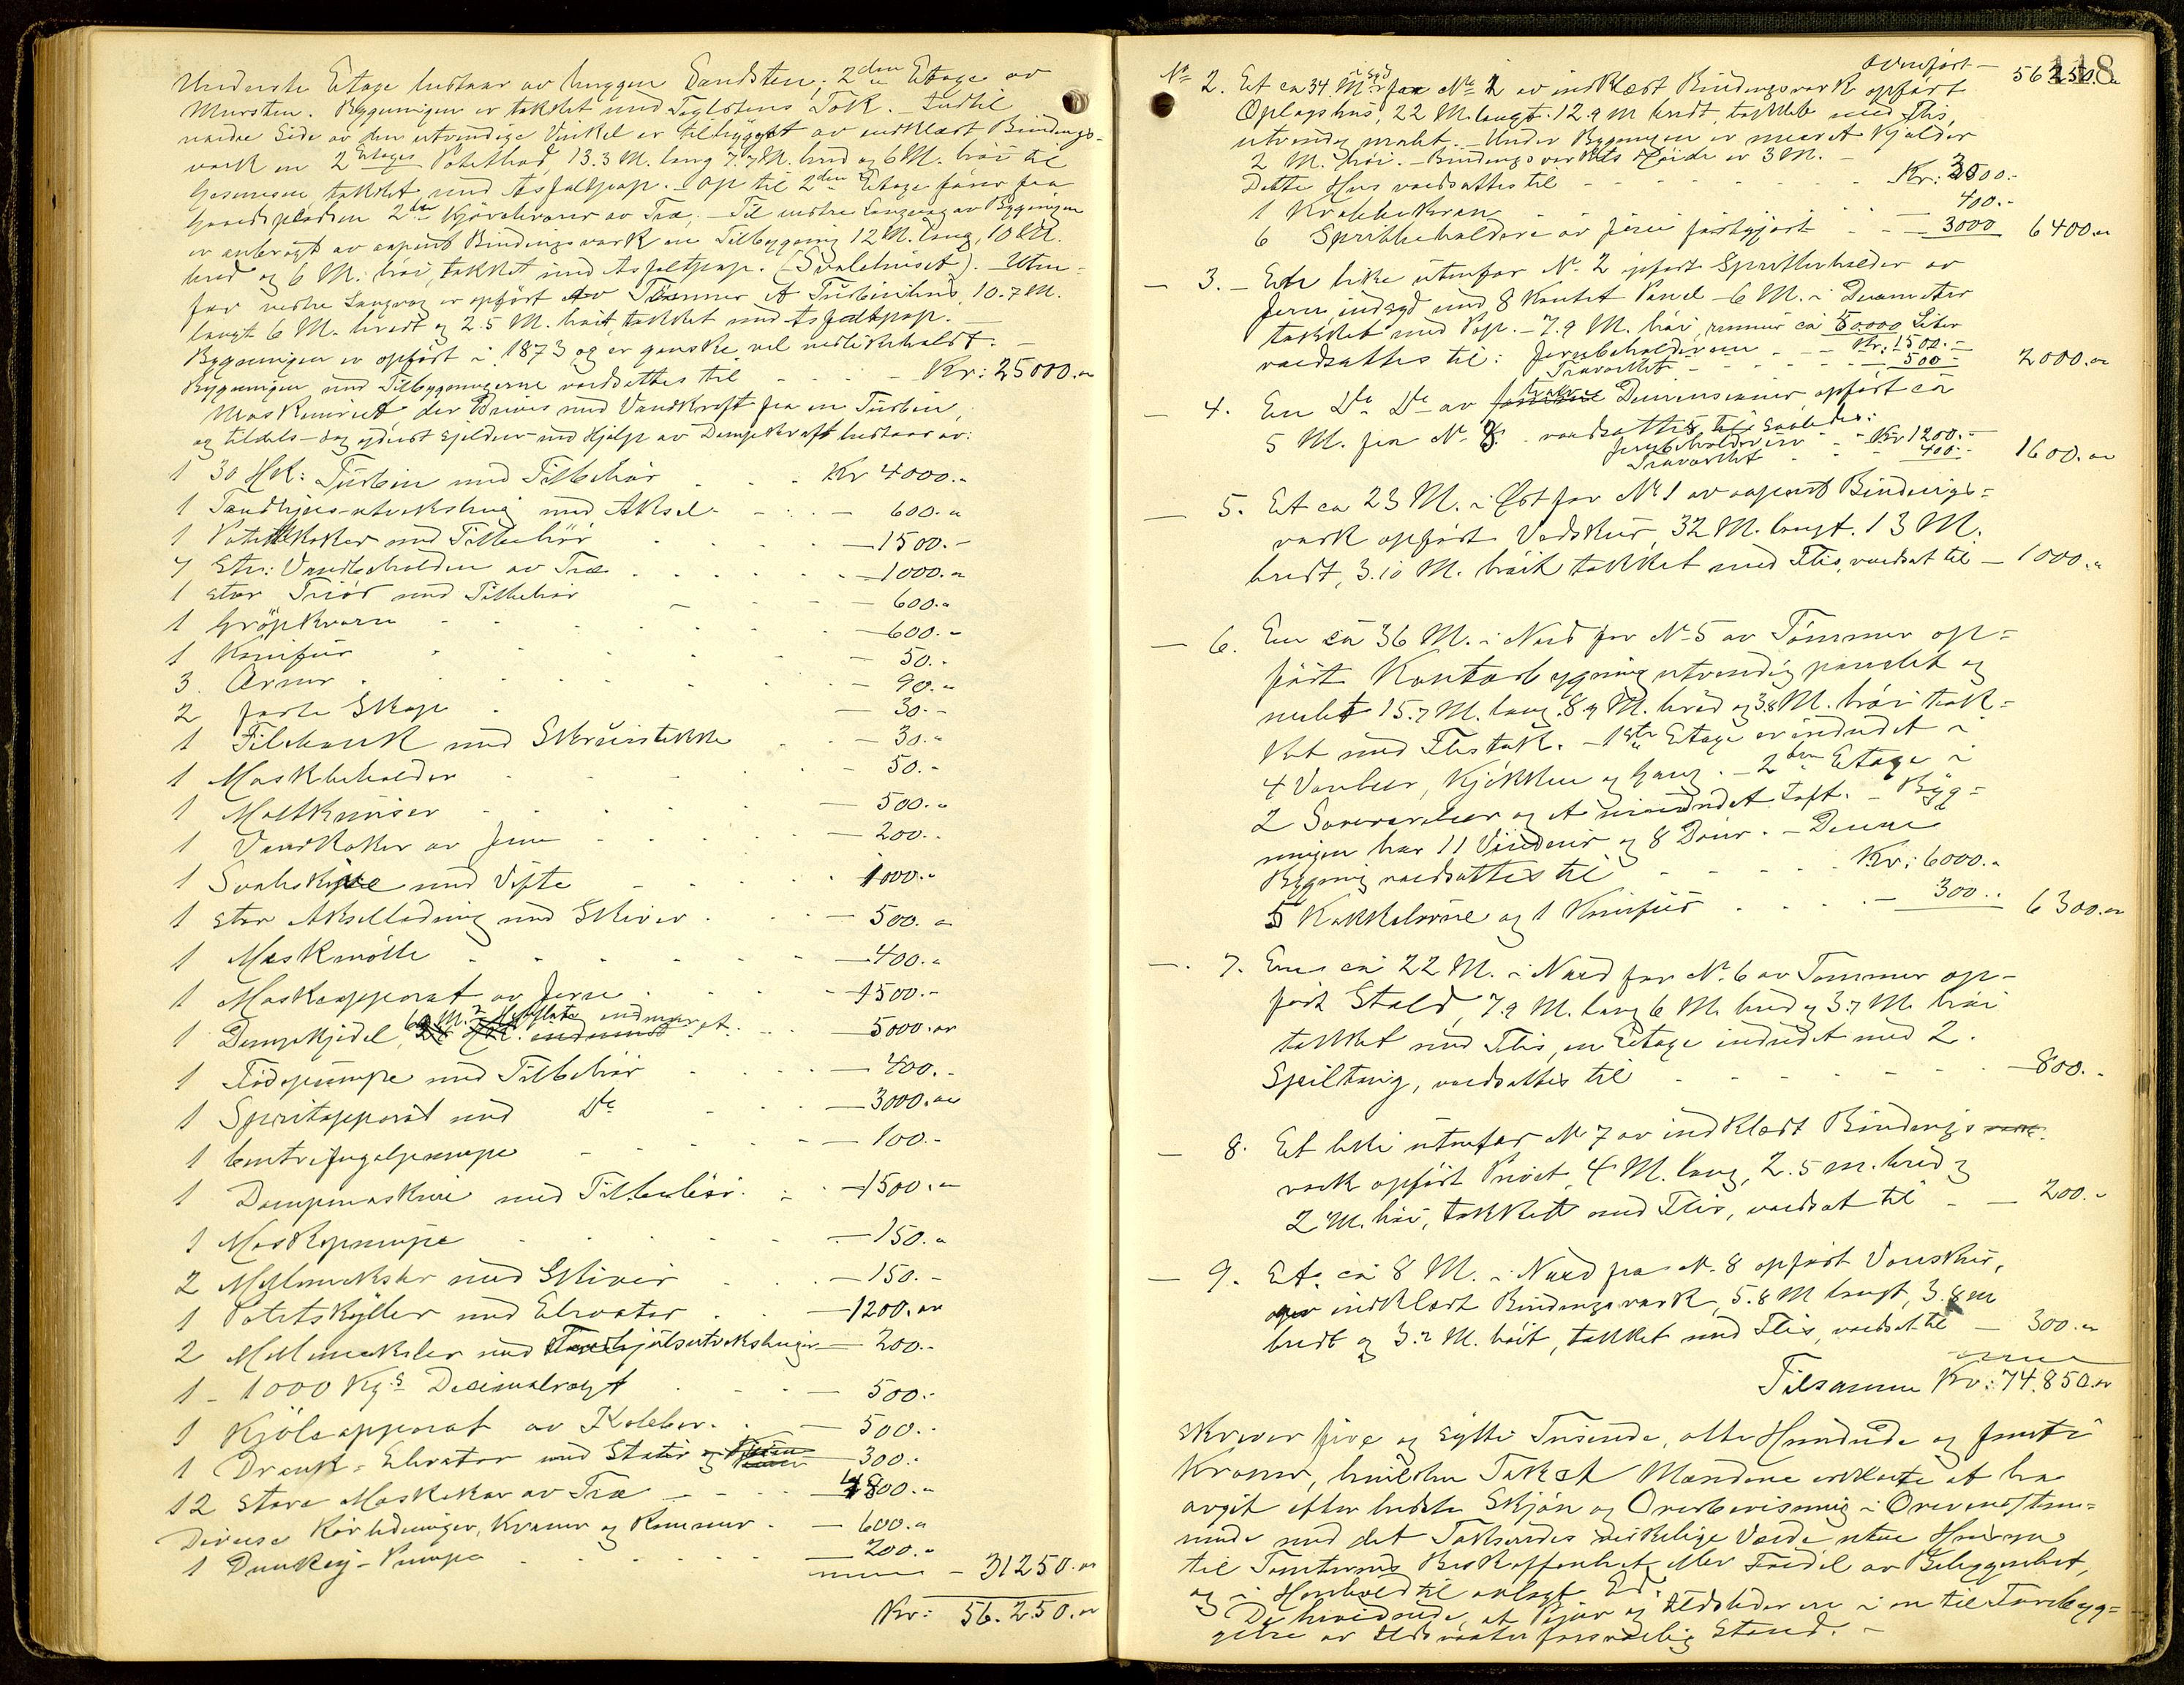 Underste Etage bestaar av huggen Sandsten, 2den Etage av
Mursten. Bygningen er tækket med Taglstens Tak. – Indtil
nordre Side av den utvendige Vinkel er tilbygget av indklædt Bindings-
værk en 2 Etages Potetbod, 13.3 M. lang 7.7 M. bred og 6 M. høi til
Gesimsen, tækket med Asfaltpap. – Op til 2den Etage fører fra
Gaardspladsen 2de Kjørebroer av Træ. – Til vestre Langvæg av Bygningen
er anbragt av aapent Bindingsværk en Tilbygning 12 M. lang, 10 M.
bred og 6 M. høi, tækket med Asfaltpap. (Svalehuset). – Uten-
for vestre Langvæg er opført av Tømmer et Turbinhus, 10.7 M.
langt 6 M. bredt og 2.5 M. høit, tækket med Asfaltpap. –
Bygningen er opført i 1873 og er ganske vel vedlikeholdt. –
Bygningen med Tilbygningerne værdsættes til - - - Kr: 25000.00
Maskineriet der Drives med Vandkraft fra en Turbin,
og tildels – dog yderst sjelden – med Hjælp av Dampkraft bestaar av:
1 30 Hk: Turbin med Tilbehør . . . Kr 4000.-
1 Tandhjuls-utveksling med Aksel - - . - 600.-
1 Potetkoker med Tilbehør . . . - 1500.-
7 Stn: Vandbeholdere av Træ . . . . - 1000.-
1 stor Triør med Tilbehør - - - 600.-
1 Gröpkværn - - - - - - 600.-
1 Komfur - - - - - 50.-
3 Ovner . . . . . . - 90.-
2 faste Skap . - 30.-
1 Filebænk med Skruestikke . . - 30.-
1 Maskbeholder - - - . - 50.-
1 Maltknuser - - - - - 500.-
1 Vandkoker av Jern - - - - 200.-
1 Svaleskibe med Vifte - - . . 1000.-
1 stor Akselledning med Skiver . . - 500.-
1 Maskmölle - - - - - - 400.-
1 Maskeapparat av Jern . . . - 1500.-
1 Dampkjedel, 60 M.2 Hedeflate indmuret . . . - 5000.00
1 Fødepumpe med Tilbehør . . . - 400.-
1 Spritapparat med Do - . . - 3000.00
1 Centrifugalpumpe - - - - - 100.-
1 Dampmaskine med Tilbehør . - . - 1500.-
1 Maskpumpe - - - - - - 150.-
2 Mellemaksler med Skiver . . - 150.-
1 Potetskyller med Elevator . . - 1200.00
2 Mellemaksler med Tandhjulsutvekslinger - 200.-
1 - 1000 Kgs Decimalvægt . . - 500.-
1 Kjöleapparat av Kobber . . - 500.-
1 Drank-Elevator med Stativ - 300.-
12 store Maskekar av Træ - - - - 4800.-
Diverse Rørledninger, Kraner og Remmer . - 600.-
1 Dunkey-Pumpe - - - - - - 200.- - 31250.00
Kr: 56.250.00
118
Overført - 56250.00
No 2. Et ca 34 M. i Syd for No 1 av indklædt Bindingsværk opført
Oplagshus, 22 M. langt. 12.9 M bredt, tækket med Flis,
utvendig malt. – Under Bygningen er muret Kjælder
2 M. høi. – Bindingsverkets Høide er 3 M. –
Dette Hus værdsættes til - - - - - Kr: 3000.-
1 Krabbekran - - - - - 400.-
6 Spritbeholdere av Jern fastgjort - - - 3000 6400.00
- 3. – Ett like utenfor No 2 opført Spritbeholder av
Jern, indsyd med 8 Kantet Panel – 6 M. i Diameter
tækket med Pap. – 7.9 M. høi, rummer ca 80.000 Liter
værdsættes til: Jernbeholderen - - Kr: 1500.-
Træværket - - - - - 500 - 2000.00
- 4. En Do Do av Dimensioner opført ca
5 M. fra No 3. værdsættes saaledes:
Jernbeholderen - - Kr 1200.-
Træværket - - - 400.- 1600.00
- 5. Et ca 23 M. i Øst for No 1 av aapent Bindings-
værk opført Vedskur, 32 M. langt. 13 M.
bredt, 3.10 M. høit tækket med Flis, værdsat til - 1000.-
- 6. En ca 36 M. i Nord for No 5 av Tømmer op-
ført Kontorbygning utvendig panelet og
malet 15.7 M. lang. 8.9 M. bred og 3.8 M. høi tæk-
ket med Flistak. – 1ste Etage er indredet i
4 Værelser, Kjøkken og Gang. – 2den Etage i
2 Soveværelser og et uindredet Loft. – Byg-
ningen har 11 Vinduer og 8 Dører. – Denne
Bygning værdsættes til - - - - - Kr: 6000.-
5 Kakkelovne og 1 Komfur . . . . - 300.- 6300.00
- 7. En ca 22 M. i Nord for No 6 av Tømmer op-
ført Stald, 7.9 M. lang 6 M. bred og 3.7 M. høi
tækket med Flis, en Etage indredet med 2.
Spiltaug, værdsættes til - - - - - - 800.-
- 8. Et like utenfor No 7 av indklædt Bindings
værk opført Privet, 4 M. lang, 2.5 m. bred og
2 M. høi, tækket med Flis, værdsat til - - 200.-
- 9. Et ca 8 M. i Nord fra No. 8 opført Vognskur,
indklædt Bindingsværk, 5.8 M langt, 3.8 m
bredt og 3.2 M. høit, tækket med Flis, værdsat til - 300.00
Tilsammen Kr: 74.850.00
skriver fire og sytti Tusinde, otte Hundrede og femti
Kroner, hvilken Takst Mændene erklærte at ha
avgit efter bedste Skjøn og Overbevisning i Overensstem-
melse med det Taksertes virkelige Værdi uten Hensyn
til Tomternes Beskaffenhet eller Fordel av Beliggenhet,
og i Henhold til avlagt Ed.
De bevidnede, at Piper og Ildsteder er i en til Forebyg-
gelse av Ildsvaade forsvarlig Stand. –